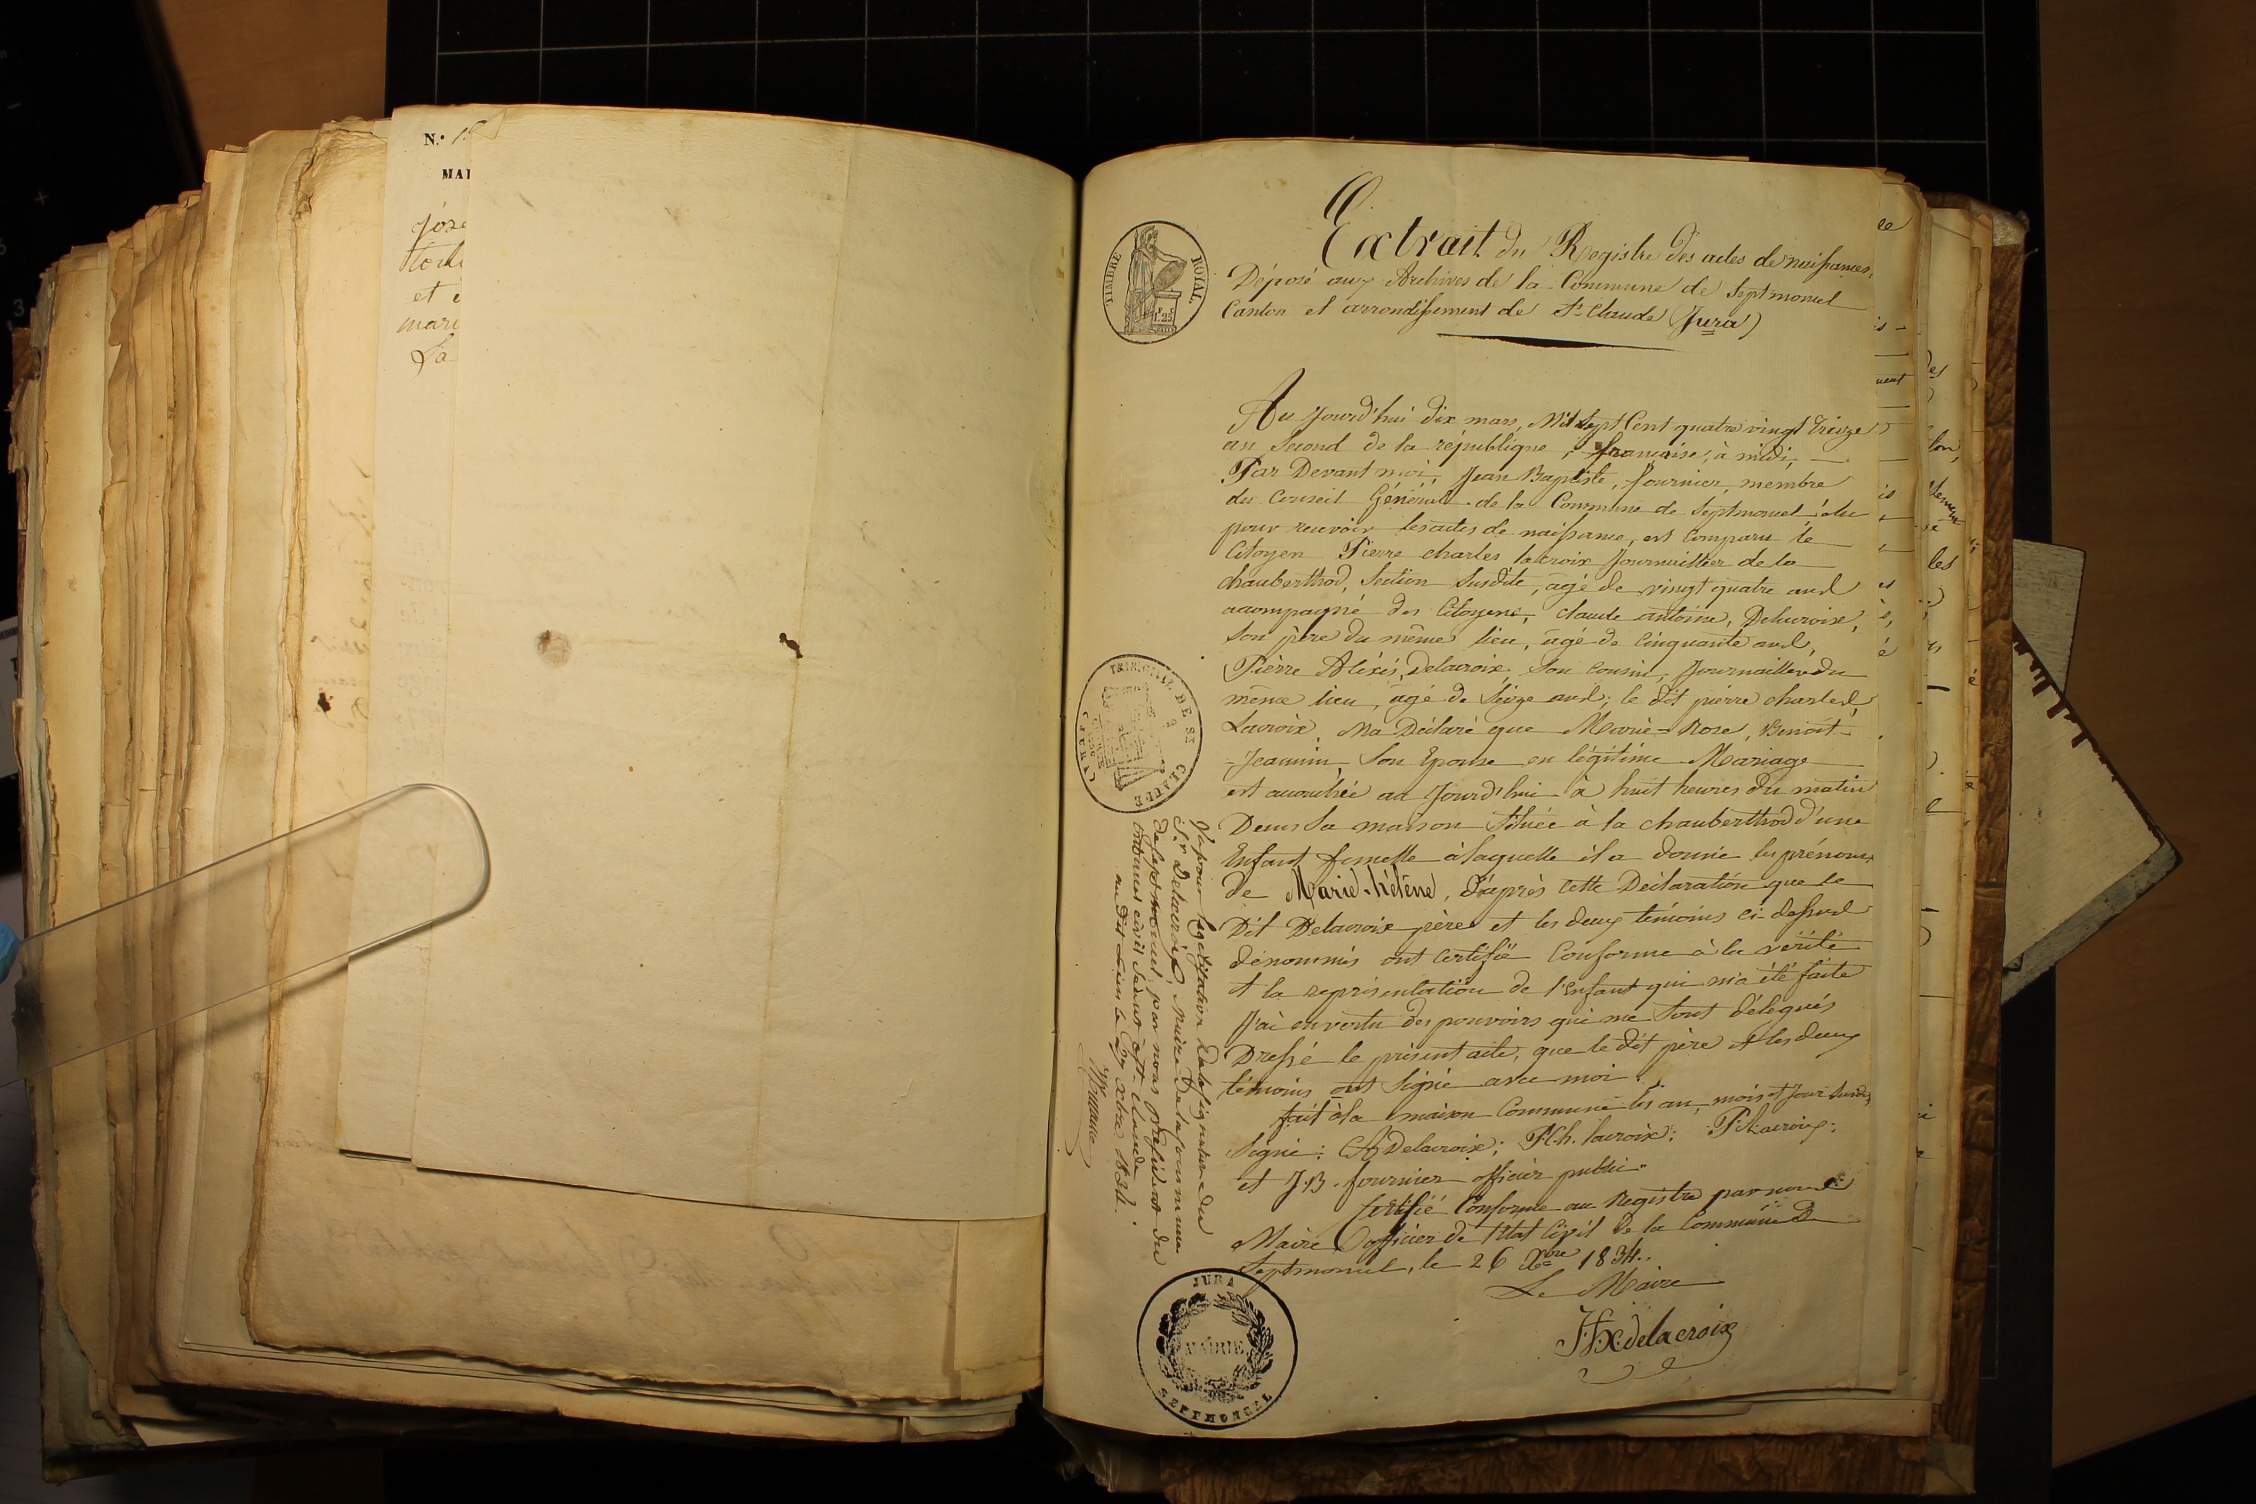 N.º 1
MAI
et
mari
La
TIMBRE ROYAL
1f.25
Extrait du Registre des actes de naissances,
Déposé aux Archives de la Commune de Septmoncel
Canton et arrondissement de St. Claude (Jura)
Au Jourd'hui dix mars, Mil Sept Cent quatre vingt treize
an Second de la république, française, à midi,
Par Devant moi, Jean Baptiste, fournier, membre
du Conseil Général de la Commune de Septmoncel élu
pour recevoir les actes de naissance, est Comparu le
Citoyen Pierre charles lacroix Journaillier de la
chauberthod, Section Susdite, agé de vingt quatre ans
acompagné des Citoyens, Claude antoine, Delacroix,
Son père du même lieu, agé de Cinquante ans,
Pierre Aléxis, Delacroix, Son Cousin, Journaillier du
même lieu, agé de Seize ans; le dit pierre charles
Lacroix, Ma Déclaré que Marie-Rose, Benoit-
-Jeannin, Son Epouse en légitime Mariage
est accouchée au Jourd'hui à huit heures du matin
Dans Sa maison Située à la chauberthod d'une
Enfant femelle à laquelle il a donné les prénoms
de Marie-hélène, D'après cette Déclaration que le
Dit Delacroix père et les deux témoins ci-dessus
dénommés ont Certifié Conforme à la vérité
et la représentation de l'enfant qui m'a été faite
J'ai en vertu des pouvoirs qui me Sont délégués
Dressé le présent acte, que le dit père et les deux
témoins ont Signé avec moi.
fait à la maison Commune les an, mois et Jour Susdits
Signé: CADelacroix; P.Ch. lacroix; P.A.Lacroix;
et J.B. fournier officier public.
Certifié Conforme au Registre par nous
Maire, officier de l'Etat Civil de la Commune de
Septmoncel, le 26 Xbre 1834.
Le Maire
delacroix
TRIBUNAL DE ST CLAUDE
(JURA)
Vu pour légalisation de la signature du
Sr Delacroix, Maire de la commune
de Septmoncel, par nous président du
tribunal civil séant à St. Claude
au dit lieu le 27 xbre 1834.
JURA
MAIRIE
SEPTMONCEL